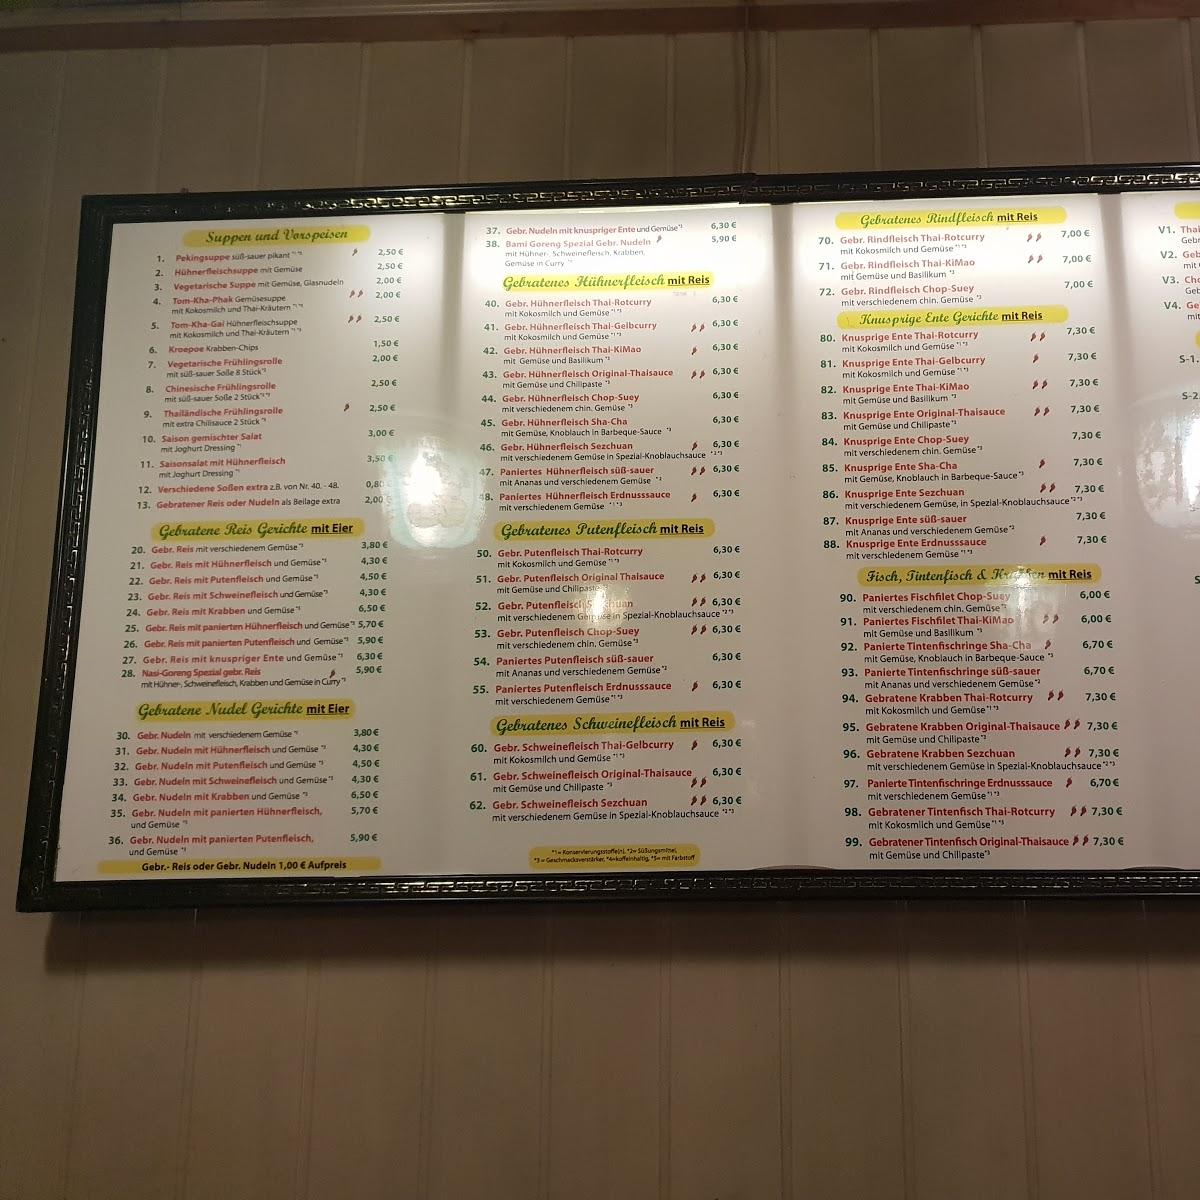 Suppen und Vorspeisen
1. Pekingsuppe süß-sauer pikant *1*3 2,50 €
2. Hühnerfleischsuppe mit Gemüse 2,50 €
3. Vegetarische Suppe mit Gemüse, Glasnudeln 2,00 €
4. Tom-Kha-Phak Gemüsesuppe 2,00 €
mit Kokosmilch und Thai-Kräutern *1*3
5. Tom-Kha-Gai Hühnerfleischsuppe 2,50 €
mit Kokosmilch und Thai-Kräutern *1*3
6. Kroepoe Krabben-Chips 1,50 €
7. Vegetarische Frühlingsrolle 2,00 €
mit süß-sauer Soße 8 Stück
8. Chinesische Frühlingsrolle 2,50 €
mit süß-sauer Soße 2 Stück
9. Thailändische Frühlingsrolle 2,50 €
mit extra Chilisauce 2 Stück
10. Saison gemischter Salat 3,00 €
mit Joghurt Dressing
11. Saisonsalat mit Hühnerfleisch 3,50 €
mit Joghurt Dressing
12. Verschiedene Soßen extra z.B. von Nr. 40. - 48. 0,80
13. Gebratener Reis oder Nudeln als Beilage extra 2,00
Gebratene Reis Gerichte mit Eier
20. Gebr. Reis mit verschiedenem Gemüse*3 3,80 €
21. Gebr. Reis mit Hühnerfleisch und Gemüse*3 4,30 €
22. Gebr. Reis mit Putenfleisch und Gemüse*3 4,50 €
23. Gebr. Reis mit Schweinefleisch und Gemüse*3 4,30 €
24. Gebr. Reis mit Krabben und Gemüse*3 6,50 €
25. Gebr. Reis mit panierten Hühnerfleisch und Gemüse*3 5,70 €
26. Gebr. Reis mit panierten Putenfleisch und Gemüse*3 5,90 €
27. Gebr. Reis mit knuspriger Ente und Gemüse*3 6,30 €
28. Nasi-Goreng Spezial gebr. Reis 5,90 €
mit Hühner-, Schweinefleisch, Krabben und Gemüse in Curry*3
Gebratene Nudel Gerichte mit Eier
30. Gebr. Nudeln mit verschiedenem Gemüse*3 3,80 €
31. Gebr. Nudeln mit Hühnerfleisch und Gemüse*3 4,30 €
32. Gebr. Nudeln mit Putenfleisch und Gemüse*3 4,50 €
33. Gebr. Nudeln mit Schweinefleisch und Gemüse*3 4,30 €
34. Gebr. Nudeln mit Krabben und Gemüse*3 6,50 €
35. Gebr. Nudeln mit panierten Hühnerfleisch, 5,70 €
und Gemüse*3
36. Gebr. Nudeln mit panierten Putenfleisch, 5,90 €
und Gemüse*3
Gebr.- Reis oder Gebr. Nudeln 1,00 € Aufpreis
37. Gebr. Nudeln mit knuspriger Ente und Gemüse*3 6,30 €
38. Bami Goreng Spezial Gebr. Nudeln 5,90 €
mit Hühner-, Schweinefleisch, Krabben,
Gemüse in Curry*3
Gebratenes Hühnerfleisch mit Reis
40. Gebr. Hühnerfleisch Thai-Rotcurry 6,30 €
mit Kokosmilch und Gemüse*1*3
41. Gebr. Hühnerfleisch Thai-Gelbcurry 6,30 €
mit Kokosmilch und Gemüse*1*3
42. Gebr. Hühnerfleisch Thai-KiMao 6,30 €
mit Gemüse und Basilikum*3
43. Gebr. Hühnerfleisch Original-Thaisauce 6,30 €
mit Gemüse und Chilipaste*3
44. Gebr. Hühnerfleisch Chop-Suey 6,30 €
mit verschiedenem chin. Gemüse*3
45. Gebr. Hühnerfleisch Sha-Cha 6,30 €
mit Gemüse, Knoblauch in Barbeque-Sauce*3
46. Gebr. Hühnerfleisch Sezchuan 6,30 €
mit verschiedenem Gemüse in Spezial-Knoblauchsauce*2*3
47. Paniertes Hühnerfleisch süß-sauer 6,30 €
mit Ananas und verschiedenem Gemüse*3
48. Paniertes Hühnerfleisch Erdnusssauce 6,30 €
mit verschiedenem Gemüse*1*3
Gebratenes Putenfleisch mit Reis
50. Gebr. Putenfleisch Thai-Rotcurry 6,30 €
mit Kokosmilch und Gemüse*1*3
51. Gebr. Putenfleisch Original Thaisauce 6,30 €
mit Gemüse und Chilipaste
52. Gebr. Putenfleisch Sezchuan 6,30 €
mit verschiedenem Gemüse in Spezial-Knoblauchsauce*2*3
53. Gebr. Putenfleisch Chop-Suey 6,30 €
mit verschiedenem chin. Gemüse*3
54. Paniertes Putenfleisch süß-sauer 6,30 €
mit Ananas und verschiedenem Gemüse*2
55. Paniertes Putenfleisch Erdnusssauce 6,30 €
mit verschiedenem Gemüse*1*3
Gebratenes Schweinefleisch mit Reis
60. Gebr. Schweinefleisch Thai-Gelbcurry 6,30 €
mit Kokosmilch und Gemüse*1*3
61. Gebr. Schweinefleisch Original-Thaisauce 6,30 €
mit Gemüse und Chilipaste*3
62. Gebr. Schweinefleisch Sezchuan 6,30 €
mit verschiedenem Gemüse in Spezial-Knoblauchsauce*2*3
*1= Konservierungsstoffe(n), *2= Süßungsmittel,
*3 = Geschmacksverstärker, *4=koffeinhaltig, *5= mit Farbstoff
Gebratenes Rindfleisch mit Reis
70. Gebr. Rindfleisch Thai-Rotcurry 7,00 €
mit Kokosmilch und Gemüse*1*3
71. Gebr. Rindfleisch Thai-KiMao 7,00 €
mit Gemüse und Basilikum*3
72. Gebr. Rindfleisch Chop-Suey 7,00 €
mit verschiedenem chin. Gemüse*3
Knusprige Ente Gerichte mit Reis
80. Knusprige Ente Thai-Rotcurry 7,30 €
mit Kokosmilch und Gemüse*1*3
81. Knusprige Ente Thai-Gelbcurry 7,30 €
mit Kokosmilch und Gemüse*1*3
82. Knusprige Ente Thai-KiMao 7,30 €
mit Gemüse und Basilikum*3
83. Knusprige Ente Original-Thaisauce 7,30 €
mit Gemüse und Chilipaste*3
84. Knusprige Ente Chop-Suey 7,30 €
mit verschiedenem chin. Gemüse*3
85. Knusprige Ente Sha-Cha 7,30 €
mit Gemüse, Knoblauch in Barbeque-Sauce*3
86. Knusprige Ente Sezchuan 7,30 €
mit verschiedenem Gemüse, in Spezial-Knoblauchsauce*2*3
87. Knusprige Ente süß-sauer 7,30 €
mit Ananas und verschiedenem Gemüse*2
88. Knusprige Ente Erdnusssauce 7,30 €
mit verschiedenem Gemüse*1*3
Fisch, Tintenfisch & Krabben mit Reis
90. Paniertes Fischfilet Chop-Suey 6,00 €
mit verschiedenem chin. Gemüse*3
91. Paniertes Fischfilet Thai-KiMao 6,00 €
mit Gemüse und Basilikum*3
92. Panierte Tintenfischringe Sha-Cha 6,70 €
mit Gemüse, Knoblauch in Barbeque-Sauce*3
93. Panierte Tintenfischringe süß-sauer 6,70 €
mit Ananas und verschiedenem Gemüse*2
94. Gebratene Krabben Thai-Rotcurry 7,30 €
mit Kokosmilch und Gemüse*1*3
95. Gebratene Krabben Original-Thaisauce 7,30 €
mit Gemüse und Chilipaste*3
96. Gebratene Krabben Sezchuan 7,30 €
mit verschiedenem Gemüse in Spezial-Knoblauchsauce*2*3
97. Panierte Tintenfischringe Erdnusssauce 6,70 €
mit verschiedenem Gemüse*1*3
98. Gebratener Tintenfisch Thai-Rotcurry 7,30 €
mit Kokosmilch und Gemüse*1*3
99. Gebratener Tintenfisch Original-Thaisauce 7,30 €
mit Gemüse und Chilipaste*3
V1. Thai
Gebr
V2. Geb
mit
V3. Cho
Geb
V4. Ge
mit
S-1.
S-2.
S